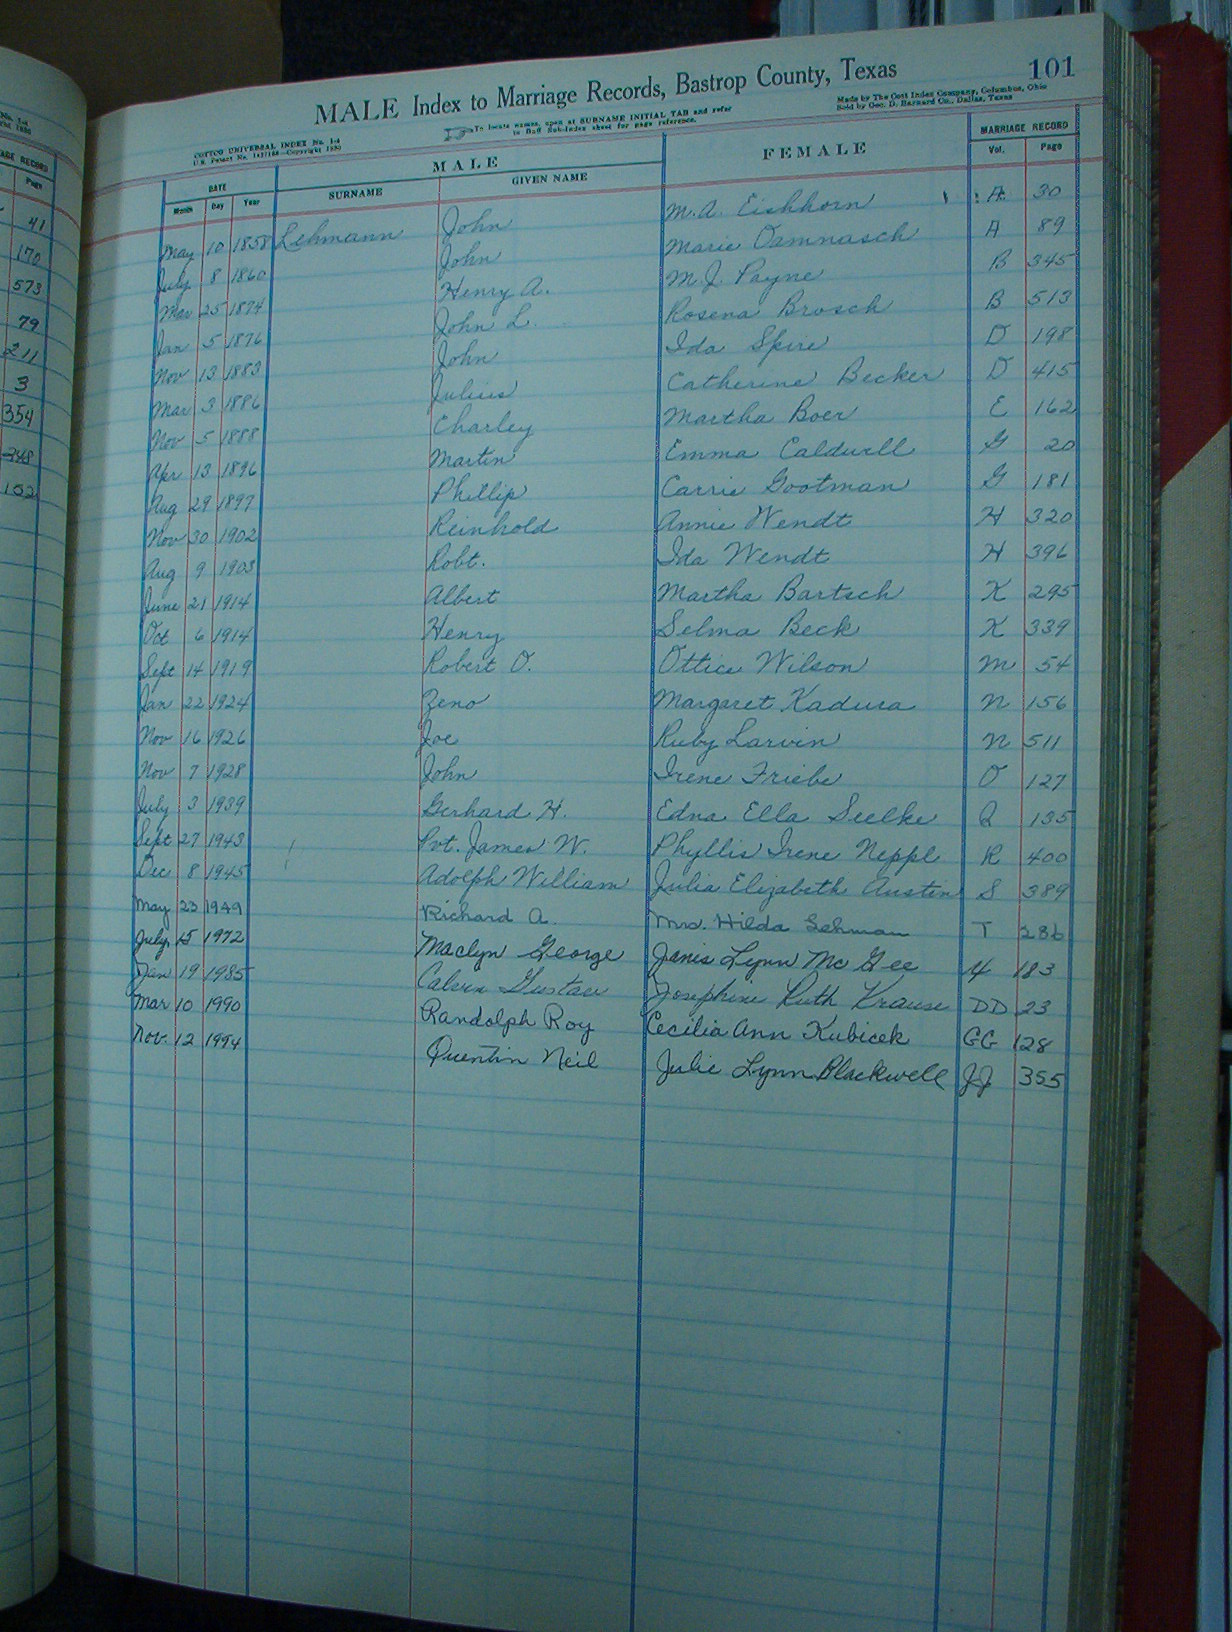 41
170
573
79
211
3
354
348
152
MALE Index to Marriage Records, Bastrop County, Texas 101
COTTCO UNIVERSAL INDEX No. 1-4
To locate names, open at SURNAME INITIAL TAB and refer
to Buff Sub-Index sheet for page reference.
Made by The Cott Index Company, Columbus, Ohio
Sold by Geo. D. Barnard Co., Dallas, Texas
DATE MALE FEMALE MARRIAGE RECORD
Month Day Year SURNAME GIVEN NAME Vol. Page
May 10 1858 Lehmann John M.A. Eichhorn A 30
July 8 1860 John Marie Damnasch A 89
Mar 25 1874 Henry A. M.J. Payne B 345
Jan 5 1876 John L. Rosena Brosch B 513
Nov 13 1883 John Ida Spire D 198
Mar 3 1886 Julius Catherine Becker D 415
Nov 5 1888 Charley Martha Boer E 162
Apr 13 1896 Martin Emma Caldwell G 20
Aug 29 1897 Phillip Carrie Gootman G 181
Nov 30 1902 Reinhold Annie Wendt H 320
Aug 9 1903 Robt. Ida Wendt H 396
June 21 1914 Albert Martha Bartsch K 295
Oct 6 1914 Henry Selma Beck K 339
Sept 14 1919 Robert O. Ottice Wilson M 54
Jan 22 1924 Zeno Margaret Kadura N 156
Nov 16 1926 Joe Ruby Larvin N 511
Nov 7 1928 John Irene Friebe O 127
July 3 1939 Gerhard H. Edna Ella Seelke Q 135
Sept 27 1943 Pvt. James W. Phyllis Irene Neppl R 400
Dec 8 1945 Adolph William Julia Elizabeth Austin S 389
May 23 1949 Richard A. Mrs. Hilda Lehman T 286
July 15 1972 Maclyn George Janis Lynn McGee 4 183
Jan 19 1985 Calvin Gustav Josephine Ruth Krause DD 23
Mar 10 1990 Randolph Roy Cecilia Ann Kubicek GG 128
Nov. 12 1994 Quentin Neil Julie Lynn Blackwell JJ 355